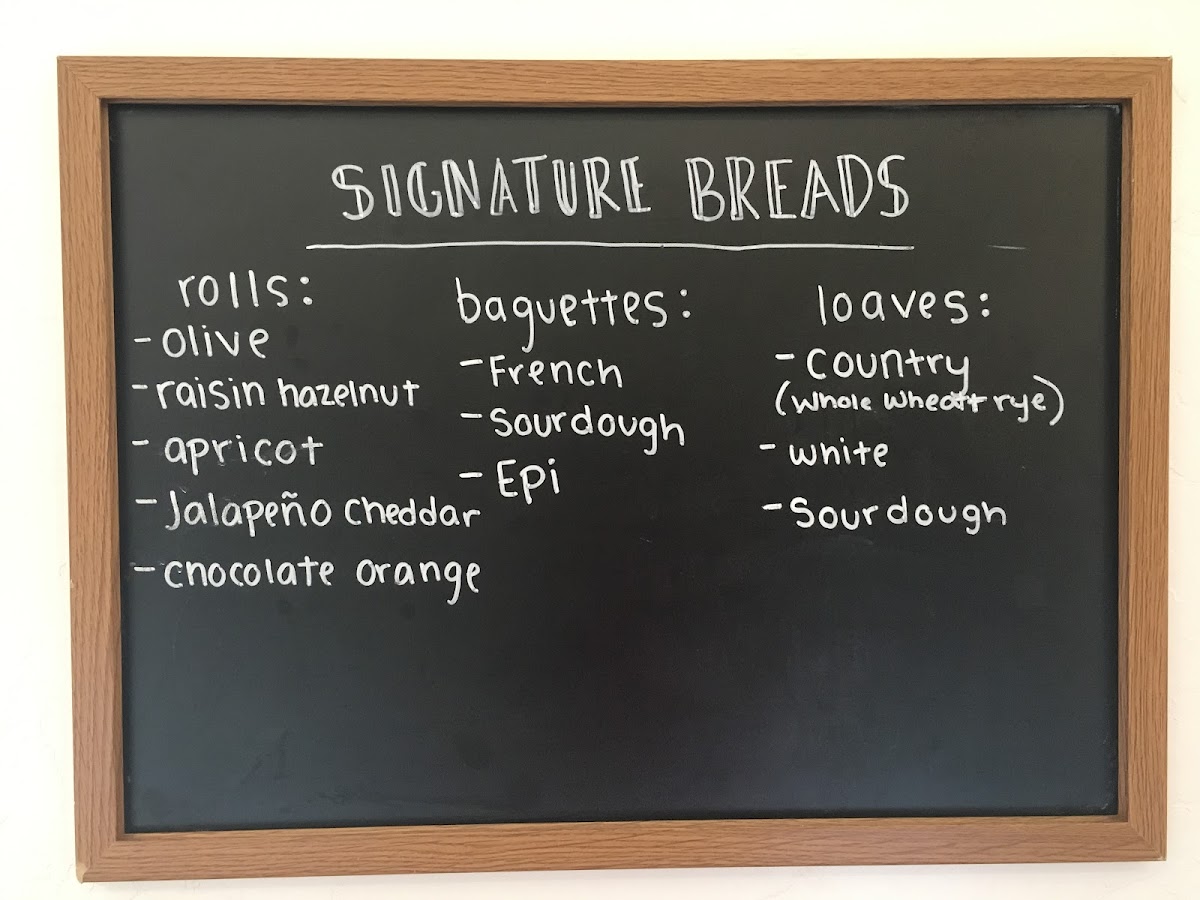 SIGNATURE BREADS
rolls:
- olive
- raisin hazelnut
- apricot
- Jalapeño cheddar
- chocolate orange
baguettes:
- French
- Sourdough
- Epi
loaves:
- country
(whole wheat + rye)
- white
- Sourdough